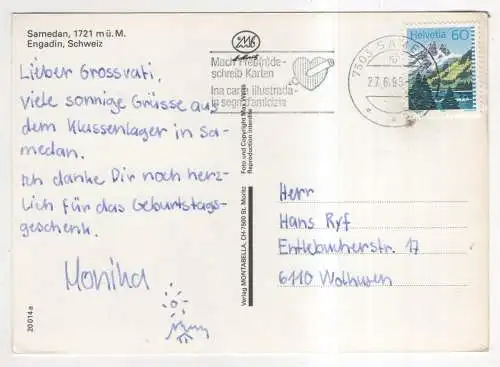 Samedan, 1721 m ü. M.
Engadin, Schweiz
Lieber Grossvati,
viele sonnige Grüsse aus
dem Klassenlager in Sa-
medan.
Ich danke Dir noch herz-
lich für das Geburtstags-
geschenk.
Monika
20 014 a
Verlag MONTABELLA, CH-7500 St. Moritz
Foto und Copyright Max Weiss
Reproduction interdite
Mach Freu(n)de-
schreib Karten
Ina carta illustrada
in segn d'amicizia
7503 SAMEDAN
27.6.95
Helvetia 60
Herr
Hans Ryf
Entlebucherstr. 17
6110 Wolhusen